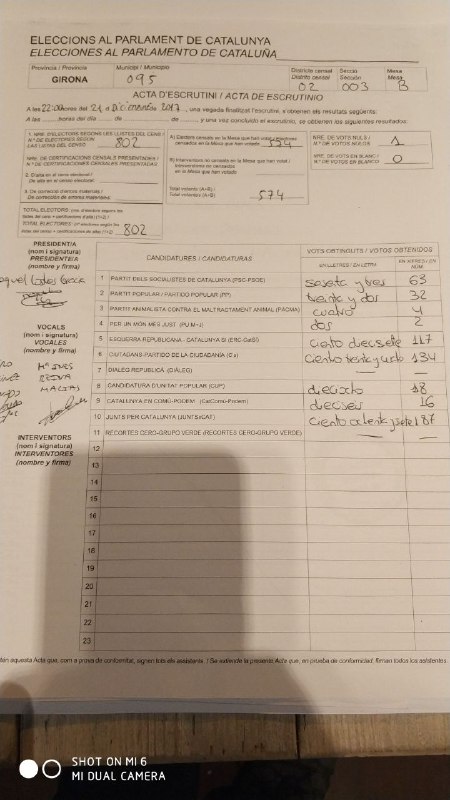 ELECCIONS AL PARLAMENT DE CATALUNYA
ELECCIONES AL PARLAMENTO DE CATALUÑA
Província / Provincia Municipi / Municipio Districte censal Secció Mesa
Distrito censal Sección Mesa
GIRONA 095 02 003 B
ACTA D'ESCRUTINI / ACTA DE ESCRUTINIO
A les 22:00 hores del 21 de Diciembre 2017, una vegada finalitzat l'escrutini, s'obtenen els resultats següents:
A las hores del día de de , y una vez concluido el escrutinio, se obtienen los siguientes resultados:
1. NRE. D'ELECTORS SEGONS LES LLISTES DEL CENS /
N.º DE ELECTORES SEGÚN
LAS LISTAS DEL CENSO 802
NRE. DE CERTIFICACIONS CENSALS PRESENTADES /
N.º DE CERTIFICACIONES CENSALES PRESENTADAS
2. D'alta en el cens electoral /
De alta en el censo electoral
3. De correcció d'errors materials /
De corrección de errores materiales
TOTAL ELECTORS
TOTAL ELECTORES 802
A) Electors censats en la Mesa que han votat / Electores
censados en la Mesa que han votado
B) Interventors no censats en la Mesa que han votat /
Interventores no censados
en la Mesa que han votado
Total votants (A+B) /
Total votantes (A+B) 574
NRE. DE VOTS NULS /
N.º DE VOTOS NULOS 1
NRE. DE VOTS EN BLANC /
N.º DE VOTOS EN BLANCO 0
PRESIDENT/A
(nom i signatura)
PRESIDENTE/A
(nombre y firma)
VOCALS
(nom i signatura)
VOCALES
(nombre y firma)
Mª INES
INTERVENTORS
(nom i signatura)
INTERVENTORES
(nombre y firma)
CANDIDATURES / CANDIDATURAS VOTS OBTINGUTS / VOTOS OBTENIDOS
EN LLETRES / EN LETRA EN XIFRES / EN NÚM.
1 PARTIT DELS SOCIALISTES DE CATALUNYA (PSC-PSOE) sesenta y tres 63
2 PARTIT POPULAR / PARTIDO POPULAR (PP) treinta y dos 32
3 PARTIT ANIMALISTA CONTRA EL MALTRACTAMENT ANIMAL (PACMA) cuatro 4
4 PER UN MÓN MÉS JUST (PUM+J) dos 2
5 ESQUERRA REPUBLICANA - CATALUNYA SÍ (ERC-CatSí) ciento diecisiete 117
6 CIUTADANS-PARTIDO DE LA CIUDADANÍA (C's) ciento treinta y cuatro 134
7 DIÀLEG REPUBLICÀ (DIÀLEG) — —
8 CANDIDATURA D'UNITAT POPULAR (CUP) dieciocho 18
9 CATALUNYA EN COMÚ-PODEM (CatComú-Podem) dieciseis 16
10 JUNTS PER CATALUNYA (JUNTSxCAT) ciento ochenta y siete 187
11 RECORTES CERO-GRUPO VERDE (RECORTES CERO-GRUPO VERDE) — —
12
13
14
15
16
17
18
19
20
21
22
23
aquesta Acta que, com a prova de conformitat, signen tots els assistents. / Se extiende la presente Acta que, en prueba de conformidad, firman todos los asistentes.
SHOT ON MI 6
MI DUAL CAMERA